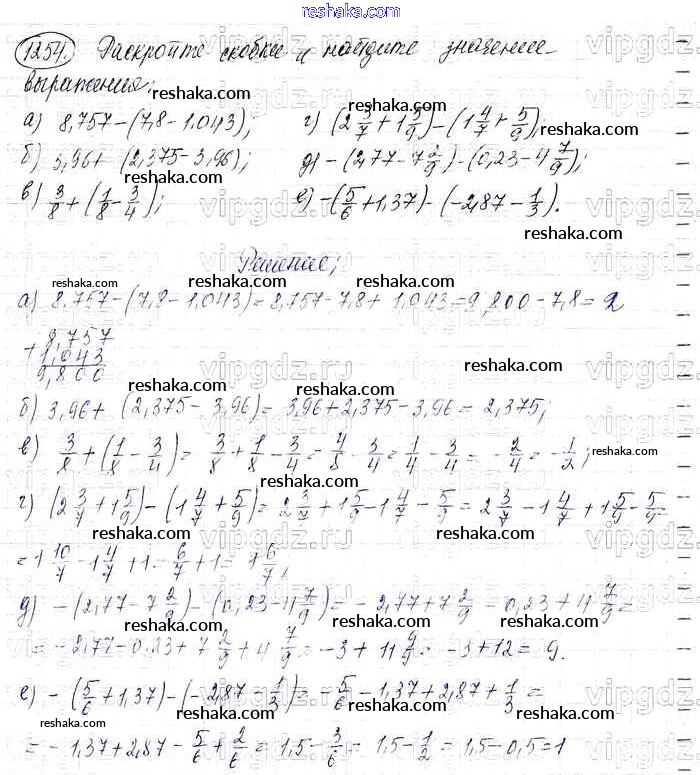 reshaka.com
1254. Раскройте скобки и найдите значение
выражения:
reshaka.com
а) 8,757-(7,8-1,043); г) (2 3/7 + 1 5/9)-(1 4/7 + 5/9);
reshaka.com reshaka.com
б) 3,96+(2,375-3,96); д) -(2,77-7 2/9)-(0,23-4 7/9);
reshaka.com
в) 3/8+(1/8-3/4); е) -(5/6+1,37)-(-2,87-1/3).
reshaka.com
Решение;
reshaka.com reshaka.com reshaka.com
а) 8,757-(7,8-1,043)=8,757-7,8+1,043=9,800-7,8=2
8,757
+1,043
9,800
reshaka.com reshaka.com reshaka.com
б) 3,96+(2,375-3,96)=3,96+2,375-3,96=2,375;
reshaka.com
в) 3/8+(1/8-3/4)=3/8+1/8-3/4=4/8-3/4=1/4-3/4=-2/4=-1/2;
reshaka.com reshaka.com
г) (2 3/7+1 5/9)-(1 4/7+5/9)=2 3/7+1 5/9-1 4/7-5/9=2 3/7-1 4/7+1 5/9-5/9=
reshaka.com reshaka.com
=1 10/7-1 4/7+1=6/7+1=1 6/7;
reshaka.com reshaka.com
д) -(2,77-7 2/9)-(0,23-4 7/9)=-2,77+7 2/9-0,23+4 7/9=
reshaka.com
=-2,77-0,23+7 2/9+4 7/9=-3+11 9/9=-3+12=9.
reshaka.com reshaka.com
е) -(5/6+1,37)-(-2,87-1/3)=-5/6-1,37+2,87+1/3=
reshaka.com reshaka.com
=-1,37+2,87-5/6+2/6=1,5-3/6=1,5-1/2=1,5-0,5=1
reshaka.com reshaka.com
vipgdz.ru